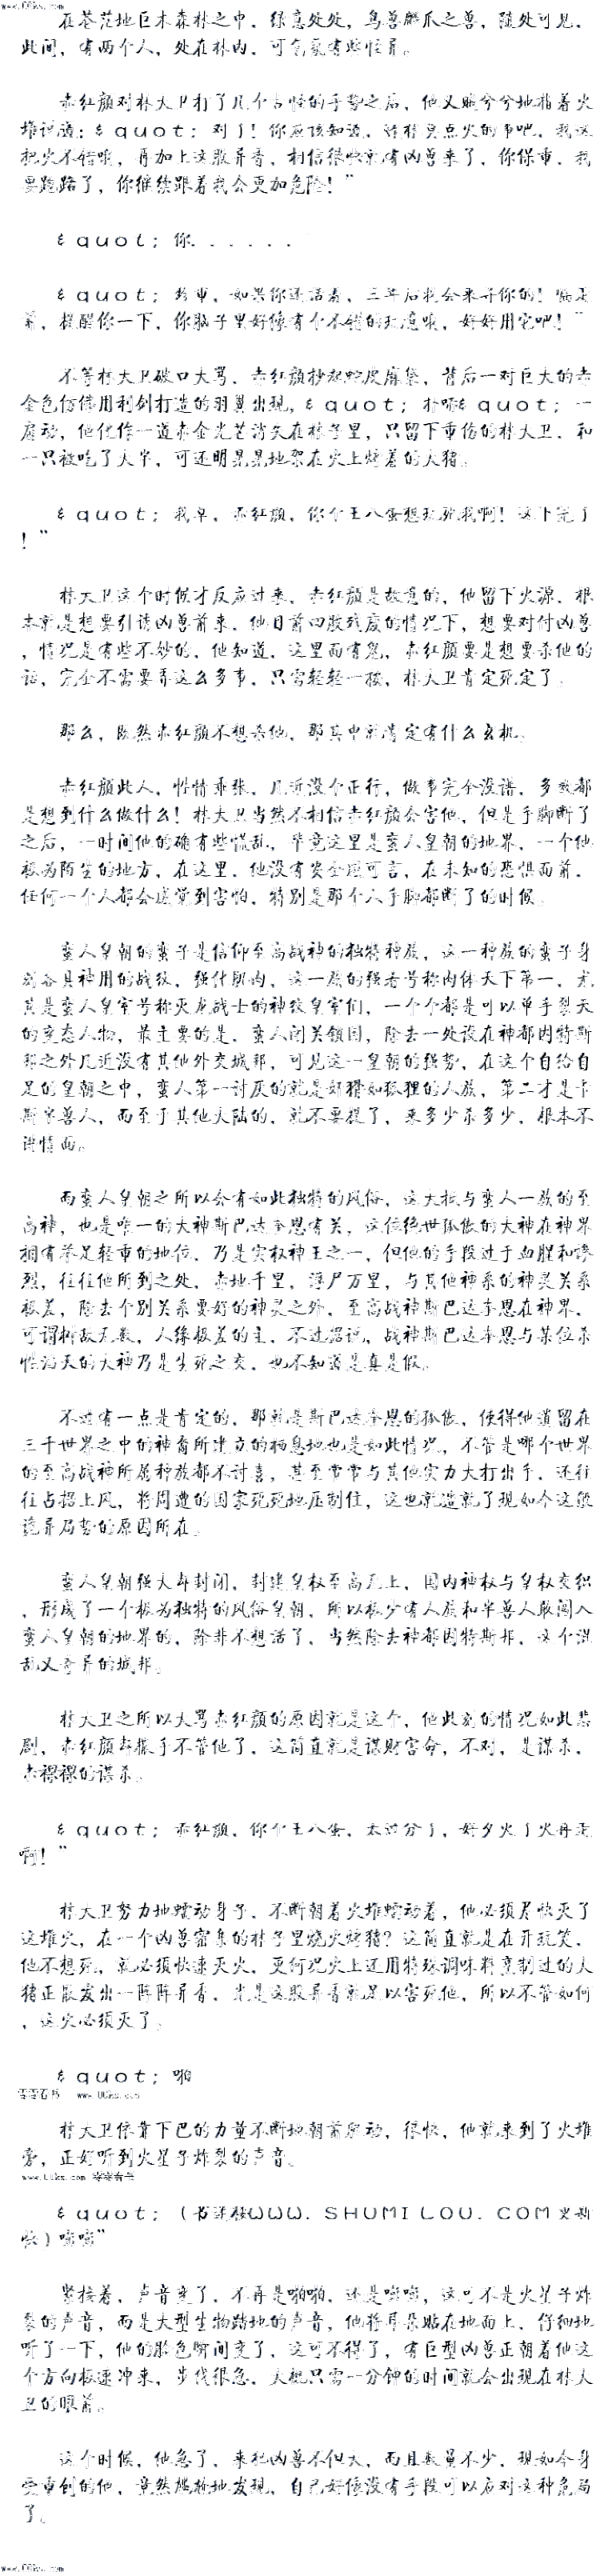 www.00ks.com
在苍茫地巨木森林之中，绿意处处，鸟兽麟爪之兽，随处可见，
此间，有两个人，处在林内，可气氛有些怪异。
赤红颜对林大卫打了几个古怪的手势之后，他又贼兮兮地指着火
堆说道：&quot；对了！你应该知道，森林莫点火的事吧，我这
把火不错哦，再加上这股异香，相信很快就有凶兽来了，你保重，我
要跑路了，你继续跟着我会更加危险！”
&quot；你．．．．．．
&quot；珍重，如果你还活着，三年后我会来寻你的！临走
前，提醒你一下，你脑子里好像有个不错的玩意哦，好好用它吧！”
不等林大卫破口大骂，赤红颜抄起蛇皮麻袋，背后一对巨大的赤
金色仿佛用利剑打造的羽翼出现，&quot；扑哧&quot；一
扇动，他化作一道赤金光芒消失在林子里，只留下重伤的林大卫，和
一只被吃了大半，可还明晃晃地架在火上烤着的大猪。
&quot；我草，赤红颜，你个王八蛋想玩死我啊！这下完了
！”
林大卫这个时候才反应过来，赤红颜是故意的，他留下火源，根
本就是想要引诱凶兽前来，他目前四肢残废的情况下，想要对付凶兽
，情况是有些不妙的，他知道，这里面有鬼，赤红颜要是想要杀他的
话，完全不需要弄这么多事，只需轻轻一按，林大卫肯定死定了。
那么，既然赤红颜不想杀他，那其中就肯定有什么玄机。
赤红颜此人，性情乖张，几近没个正行，做事完全没谱，多数都
是想到什么做什么！林大卫当然不相信赤红颜会害他，但是手脚断了
之后，一时间他的确有些慌乱，毕竟这里是蛮人皇朝的地界，一个他
极为陌生的地方，在这里，他没有安全感可言，在未知的恐惧面前，
任何一个人都会感觉到害怕，特别是那个人手脚都断了的时候。
蛮人皇朝的蛮子是信仰至高战神的独特种族，这一种族的蛮子身
刻各具神用的战纹，强什肌肉，这一族的强者号称肉体天下第一，尤
其是蛮人皇室号称灭龙战士的神纹皇室们，一个个都是可以单手裂天
的变态人物，最主要的是，蛮人闭关锁国，除去一处设在神都因特斯
邦之外几近没有其他外交城邦，可见这一皇朝的强势，在这个自给自
足的皇朝之中，蛮人第一讨厌的就是奸猾如狐狸的人族，第二才是卡
斯半兽人，而至于其他大陆的，就不要提了，来多少杀多少，根本不
讲情面。
而蛮人皇朝之所以会有如此独特的风俗，这大抵与蛮人一族的至
高神，也是唯一的大神斯巴达奎恩有关，这位绝世孤傲的大神在神界
拥有举足轻重的地位，乃是实权神王之一，但他的手段过于血腥和惨
烈，往往他所到之处，赤地千里，浮尸万里，与其他神系的神灵关系
极差，除去个别关系要好的神灵之外，至高战神斯巴达奎恩在神界，
可谓树敌无数，人缘极差的主，不过据说，战神斯巴达奎恩与某位杀
性滔天的大神乃是生死之交，也不知道是真是假。
不过有一点是肯定的，那就是斯巴达奎恩的孤傲，使得他遗留在
三千世界之中的神裔所建立的栖息地也是如此情况，不管是哪个世界
的至高战神所属种族都不讨喜，甚至常常与其他实力大打出手，还往
往占据上风，将周遭的国家死死地压制住，这也就造就了现如今这般
诡异局势的原因所在。
蛮人皇朝强大却封闭，封建皇权至高无上，国内神权与皇权交织
，形成了一个极为独特的风俗皇朝，所以极少有人族和半兽人敢闯入
蛮人皇朝的地界的，除非不想活了，当然除去神都因特斯邦，这个混
乱又奇异的城邦。
林大卫之所以大骂赤红颜的原因就是这个，他此刻的情况如此悲
剧，赤红颜却撒手不管他了，这简直就是谋财害命，不对，是谋杀，
赤裸裸的谋杀。
&quot；赤红颜，你个王八蛋，太过分了，好歹灭了火再走
啊！”
林大卫努力地蠕动身子，不断朝着火堆蠕动着，他必须尽快灭了
这堆火，在一个凶兽密集的林子里烧火烤猪？这简直就是在开玩笑，
他不想死，就必须快速灭火，更何况火上还用特殊调味料烹制过的大
猪正散发出一阵阵异香，光是这股异香就足以害死他，所以不管如何
，这火必须灭了。
&quot；啪
零零看书 www.00ks.com
林大卫依靠下巴的力量不断地朝前蠕动，很快，他就来到了火堆
旁，正好听到火星子炸裂的声音。
www.00ks.com 零零看书
&quot；（书迷楼WWW．SHUMILOU．COM更新
快）嘭嘭”
紧接着，声音变了，不再是啪啪，还是嘭嘭，这可不是火星子炸
裂的声音，而是大型生物踏地的声音，他将耳朵贴在地面上，仔细地
听了一下，他的脸色瞬间变了，这可不得了，有巨型凶兽正朝着他这
个方向极速冲来，步伐很急，大概只需一分钟的时间就会出现在林大
卫的眼前。
这个时候，他急了，来袭凶兽不但大，而且数量不少，现如今身
受重创的他，竟然尴尬地发现，自己好像没有手段可以应对这种危局
了。
www.00ks.com